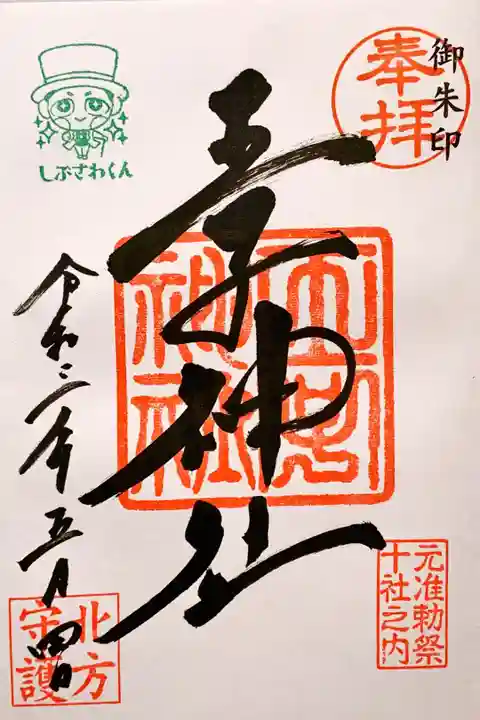 御朱印
奉拝
王子神社
王子神社
元准勅祭
十社之内
しぶさわくん
令和三年五月四日
北方
守護